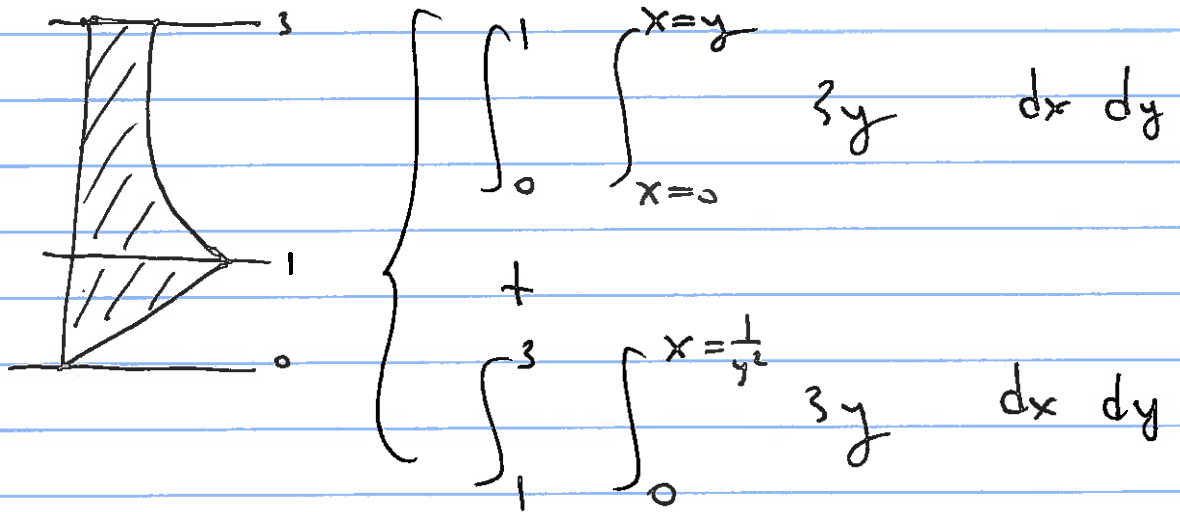 3
1
0
∫_0^1 ∫_{x=0}^{x=y} 3y dx dy
+
∫_1^3 ∫_0^{x=1/y²} 3y dx dy